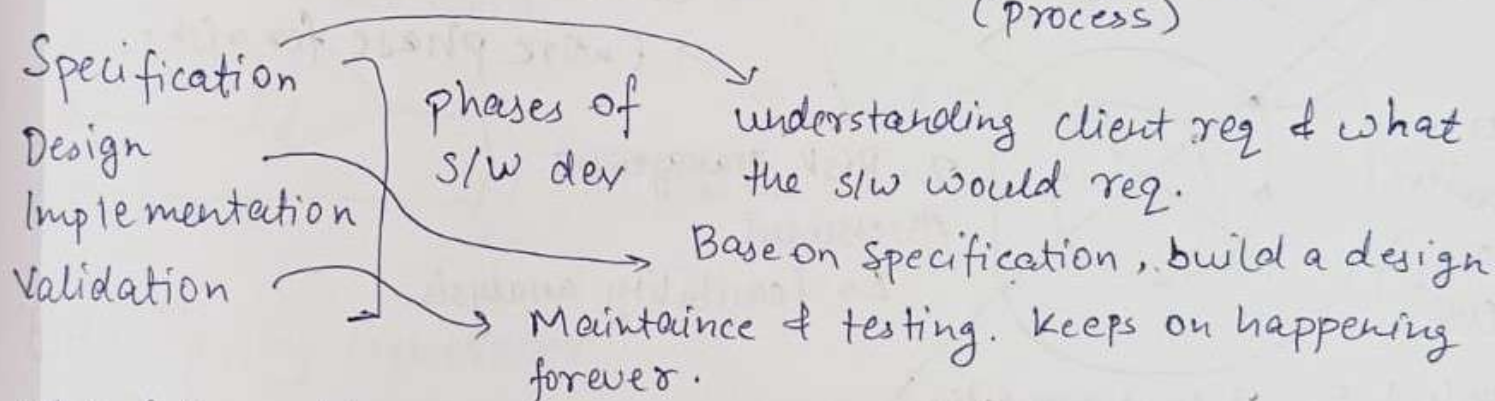 (process)
Specification
Design
Implementation
Validation
phases of
s/w dev
understanding client req & what
the s/w would req.
Base on Specification, build a design
Maintaince & testing. Keeps on happening
forever.